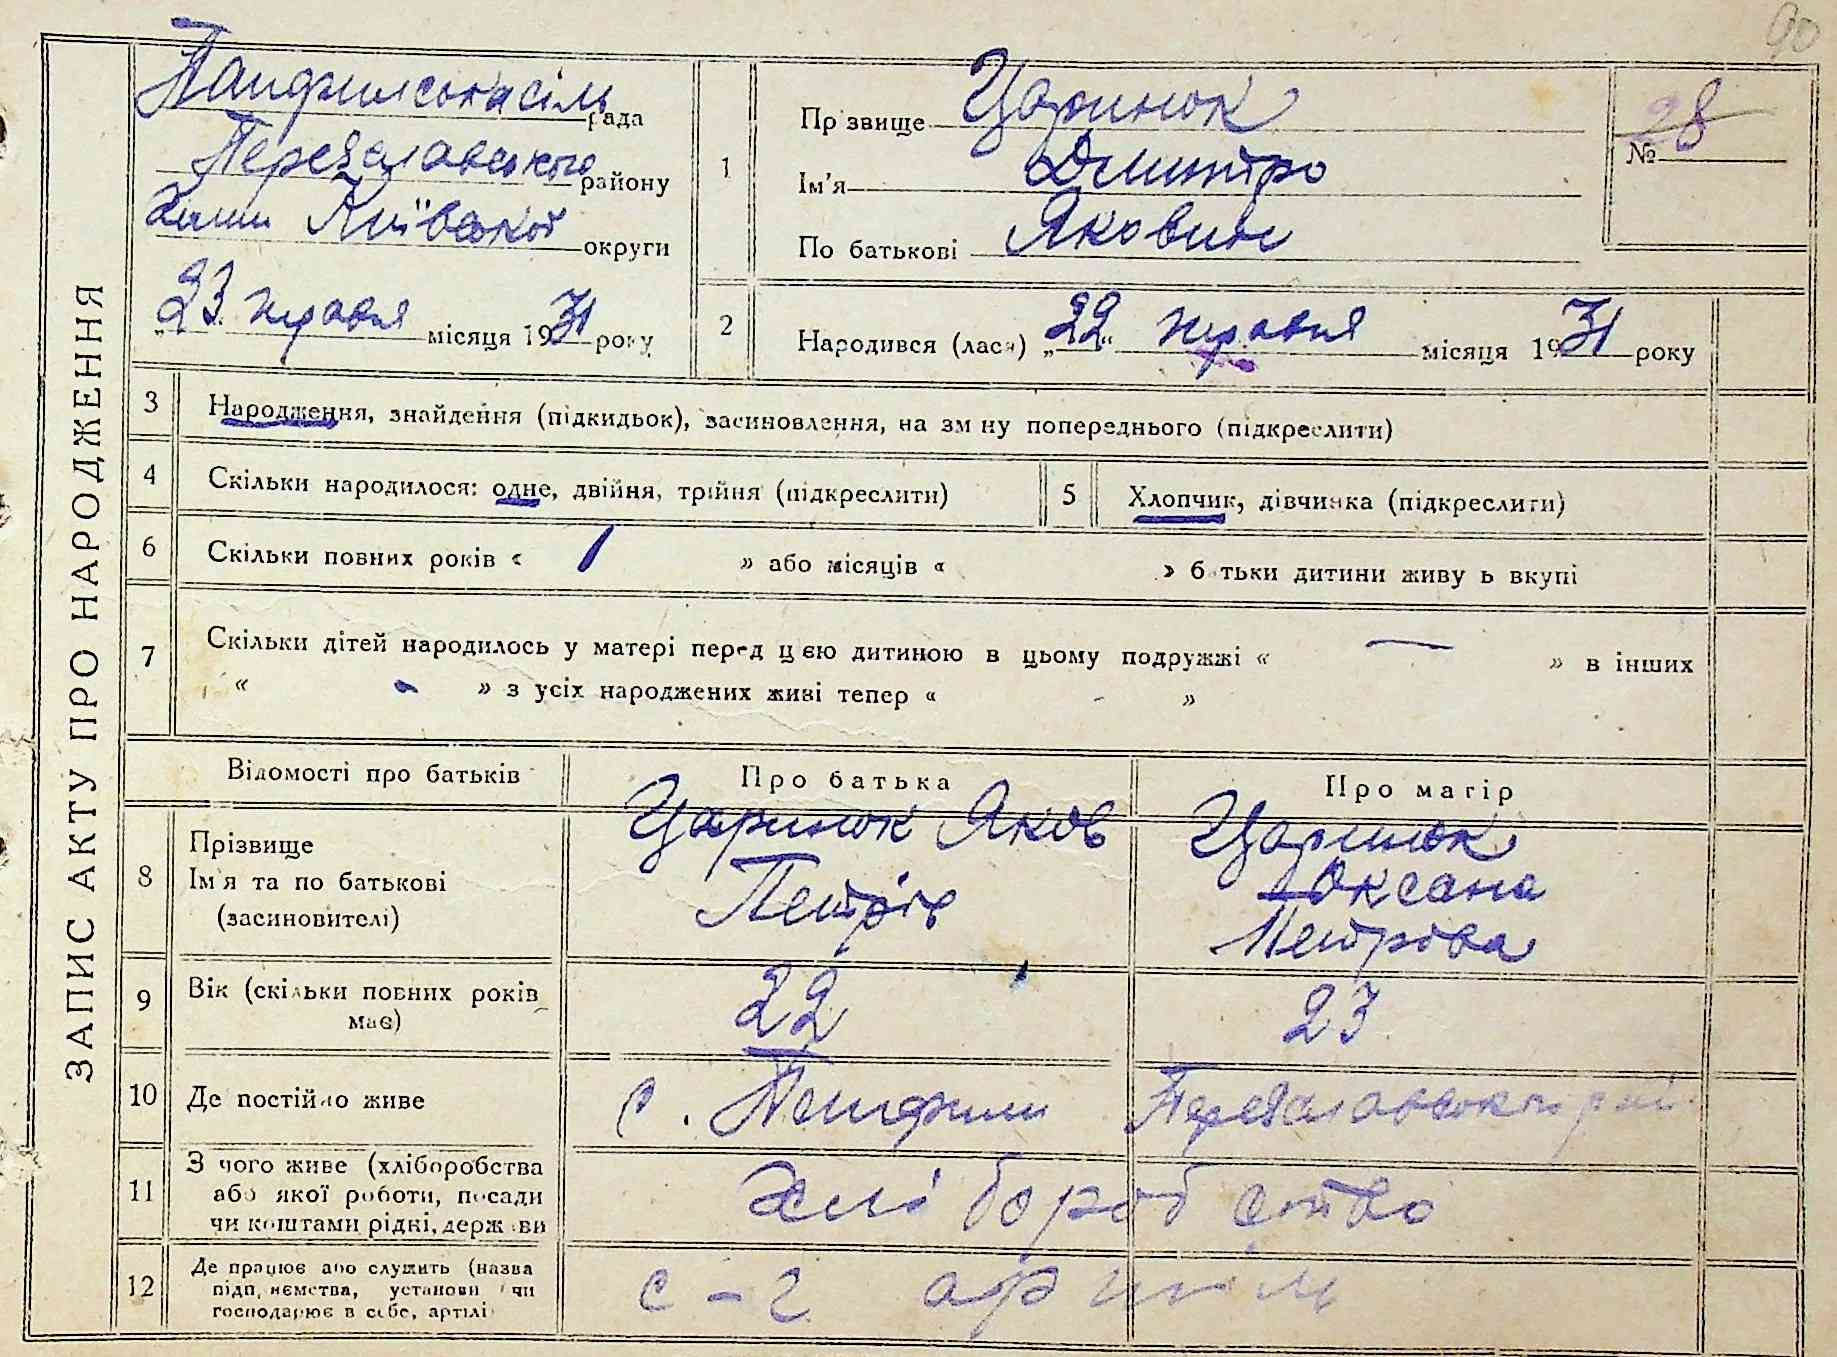 90
ЗАПИС АКТУ ПРО НАРОДЖЕННЯ
Панфилська сіль рада
Переяславського району
Київської округи
„23 травня місяця 1931 року
1
Прізвище Царинюк
Ім'я Дмитро
По батькові Якович
№ 28
2
Народився (лася) „22“ травня місяця 1931 року
3 Народження, знайдення (підкидьок), засиновлення, на зміну попереднього (підкреслити)
4 Скільки народилося: одне, двійня, трійня (підкреслити)
5 Хлопчик, дівчинка (підкреслити)
6 Скільки повних років « 1 » або місяців « » батьки дитини живуть вкупі
7 Скільки дітей народилось у матері перед цією дитиною в цьому подружжі « — » в інших
« - » з усіх народжених живі тепер « - »
Відомості про батьків Про батька Про матір
8 Прізвище
Ім'я та по батькові
(засиновителі)
Царинюк Яков
Петрів
Царинюк
Оксана
Петрова
9 Вік (скільки повних років
має)
22
23
10 Де постійно живе с. Панфили Переяславського рай.
11 З чого живе (хліборобства
або якої роботи, посади
чи коштами рідні, держави
хліборобство
12 Де працює або служить (назва
підприємства, установи чи
господарює в себе, артілі
с-г артіль